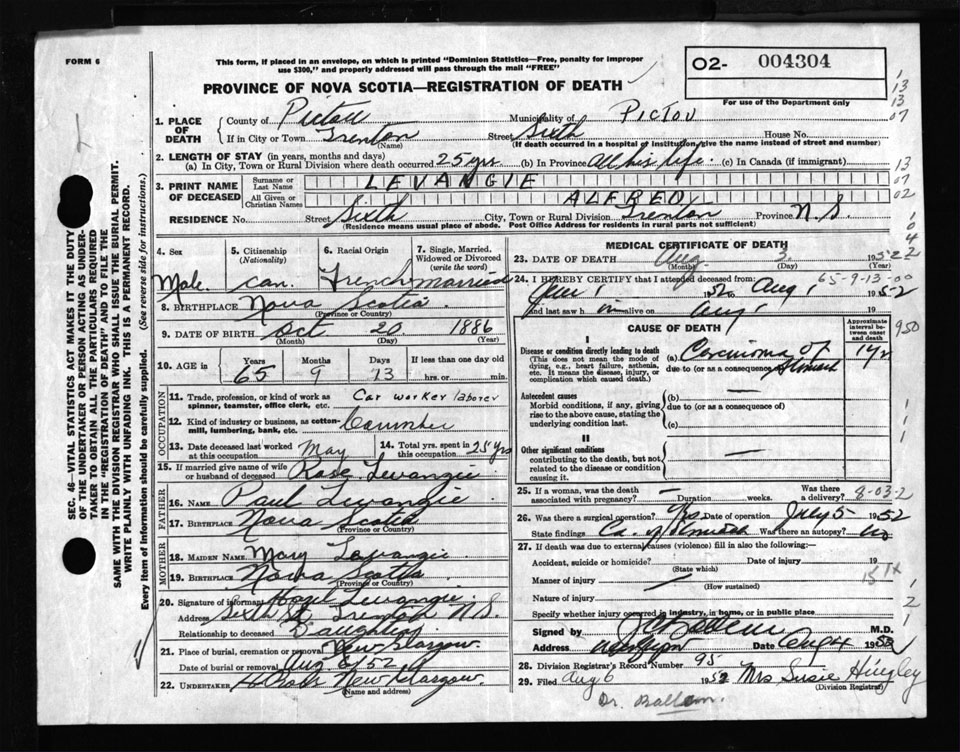 FORM 6
This form, if placed in an envelope, on which is printed "Dominion Statistics—Free, penalty for improper
use $300," and properly addressed will pass through the mail "FREE"
PROVINCE OF NOVA SCOTIA—REGISTRATION OF DEATH
O2- 004304
For use of the Department only
1. PLACE OF DEATH
County of Pictou Municipality of PICTOU
If in City or Town Trenton (Name) Street Sixth House No.
(If death occurred in a hospital or institution, give the name instead of street and number)
2. LENGTH OF STAY (in years, months and days)
(a) In City, Town or Rural Division where death occurred 25 yrs. (b) In Province All his life. (c) In Canada (if immigrant)
3. PRINT NAME OF DECEASED
Surname or Last Name LEVANGIE
All Given or Christian Names ALFRED
RESIDENCE No. Street Sixth City, Town or Rural Division Trenton Province N.S.
(Residence means usual place of abode. Post Office Address for residents in rural parts not sufficient)
4. Sex Male.
5. Citizenship (Nationality) Can.
6. Racial Origin French
7. Single, Married, Widowed or Divorced (write the word) Married
8. BIRTHPLACE Nova Scotia
(Province or Country)
9. DATE OF BIRTH Oct 20 1886
(Month) (Day) (Year)
10. AGE in Years 65 Months 9 Days 13 If less than one day old hrs. or min.
OCCUPATION
11. Trade, profession, or kind of work as spinner, teamster, office clerk, etc. Car worker laborer
12. Kind of industry or business, as cotton-mill, lumbering, bank, etc.
13. Date deceased last worked at this occupation May
14. Total yrs. spent in this occupation 25 yrs
15. If married give name of wife or husband of deceased Rose Levangie
FATHER
16. NAME Paul Levangie
17. BIRTHPLACE Nova Scotia
(Province or Country)
MOTHER
18. MAIDEN NAME Mary Levangie
19. BIRTHPLACE Nova Scotia
(Province or Country)
20. Signature of informant Hazel Levangie
Address Sixth St Trenton N.S.
Relationship to deceased Daughter
21. Place of burial, cremation or removal New Glasgow.
Date of burial or removal Aug 6/52
22. UNDERTAKER New Glasgow.
(Name and address)
MEDICAL CERTIFICATE OF DEATH
23. DATE OF DEATH Aug 3. 1952
(Month) (Day) (Year)
24. I HEREBY CERTIFY that I attended deceased from: 65-9-13-00
1952 to Aug 1 1952
and last saw h im alive on Aug 1 19
CAUSE OF DEATH
Approximate interval between onset and death
I
Disease or condition directly leading to death (a) Carcinoma of Stomach 1 yr
(This does not mean the mode of dying, e.g., heart failure, asthenia, etc. It means the disease, injury, or complication which caused death.)
due to (or as a consequence of)
Antecedent causes (b) —
Morbid conditions, if any, giving rise to the above cause, stating the underlying condition last.
due to (or as a consequence of)
(c)
II
Other significant conditions —
contributing to the death, but not related to the disease or condition causing it.
25. If a woman, was the death associated with pregnancy? — Duration weeks. Was there a delivery? 8-03-2
26. Was there a surgical operation? Yes Date of operation July 5 1952
State findings Ca. of stomach Was there an autopsy? no
27. If death was due to external causes (violence) fill in also the following:—
Accident, suicide or homicide? Date of injury 19
(State which)
Manner of injury
(How sustained)
Nature of injury
Specify whether injury occurred in industry, in home, or in public place
Signed by M.D.
Address Date Aug 4 1952
28. Division Registrar's Record Number 95
29. Filed Aug 6 1952 Mrs Susie Hingley
(Division Registrar)
Dr. Ballem.
SEC. 46—VITAL STATISTICS ACT MAKES IT THE DUTY
OF THE UNDERTAKER OR PERSON ACTING AS UNDER-
TAKER TO OBTAIN ALL THE PARTICULARS REQUIRED
IN THE "REGISTRATION OF DEATH" AND TO FILE THE
SAME WITH THE DIVISION REGISTRAR WHO SHALL ISSUE THE BURIAL PERMIT.
WRITE PLAINLY WITH UNFADING INK. THIS IS A PERMANENT RECORD.
Every item of information should be carefully supplied. (See reverse side for instructions.)